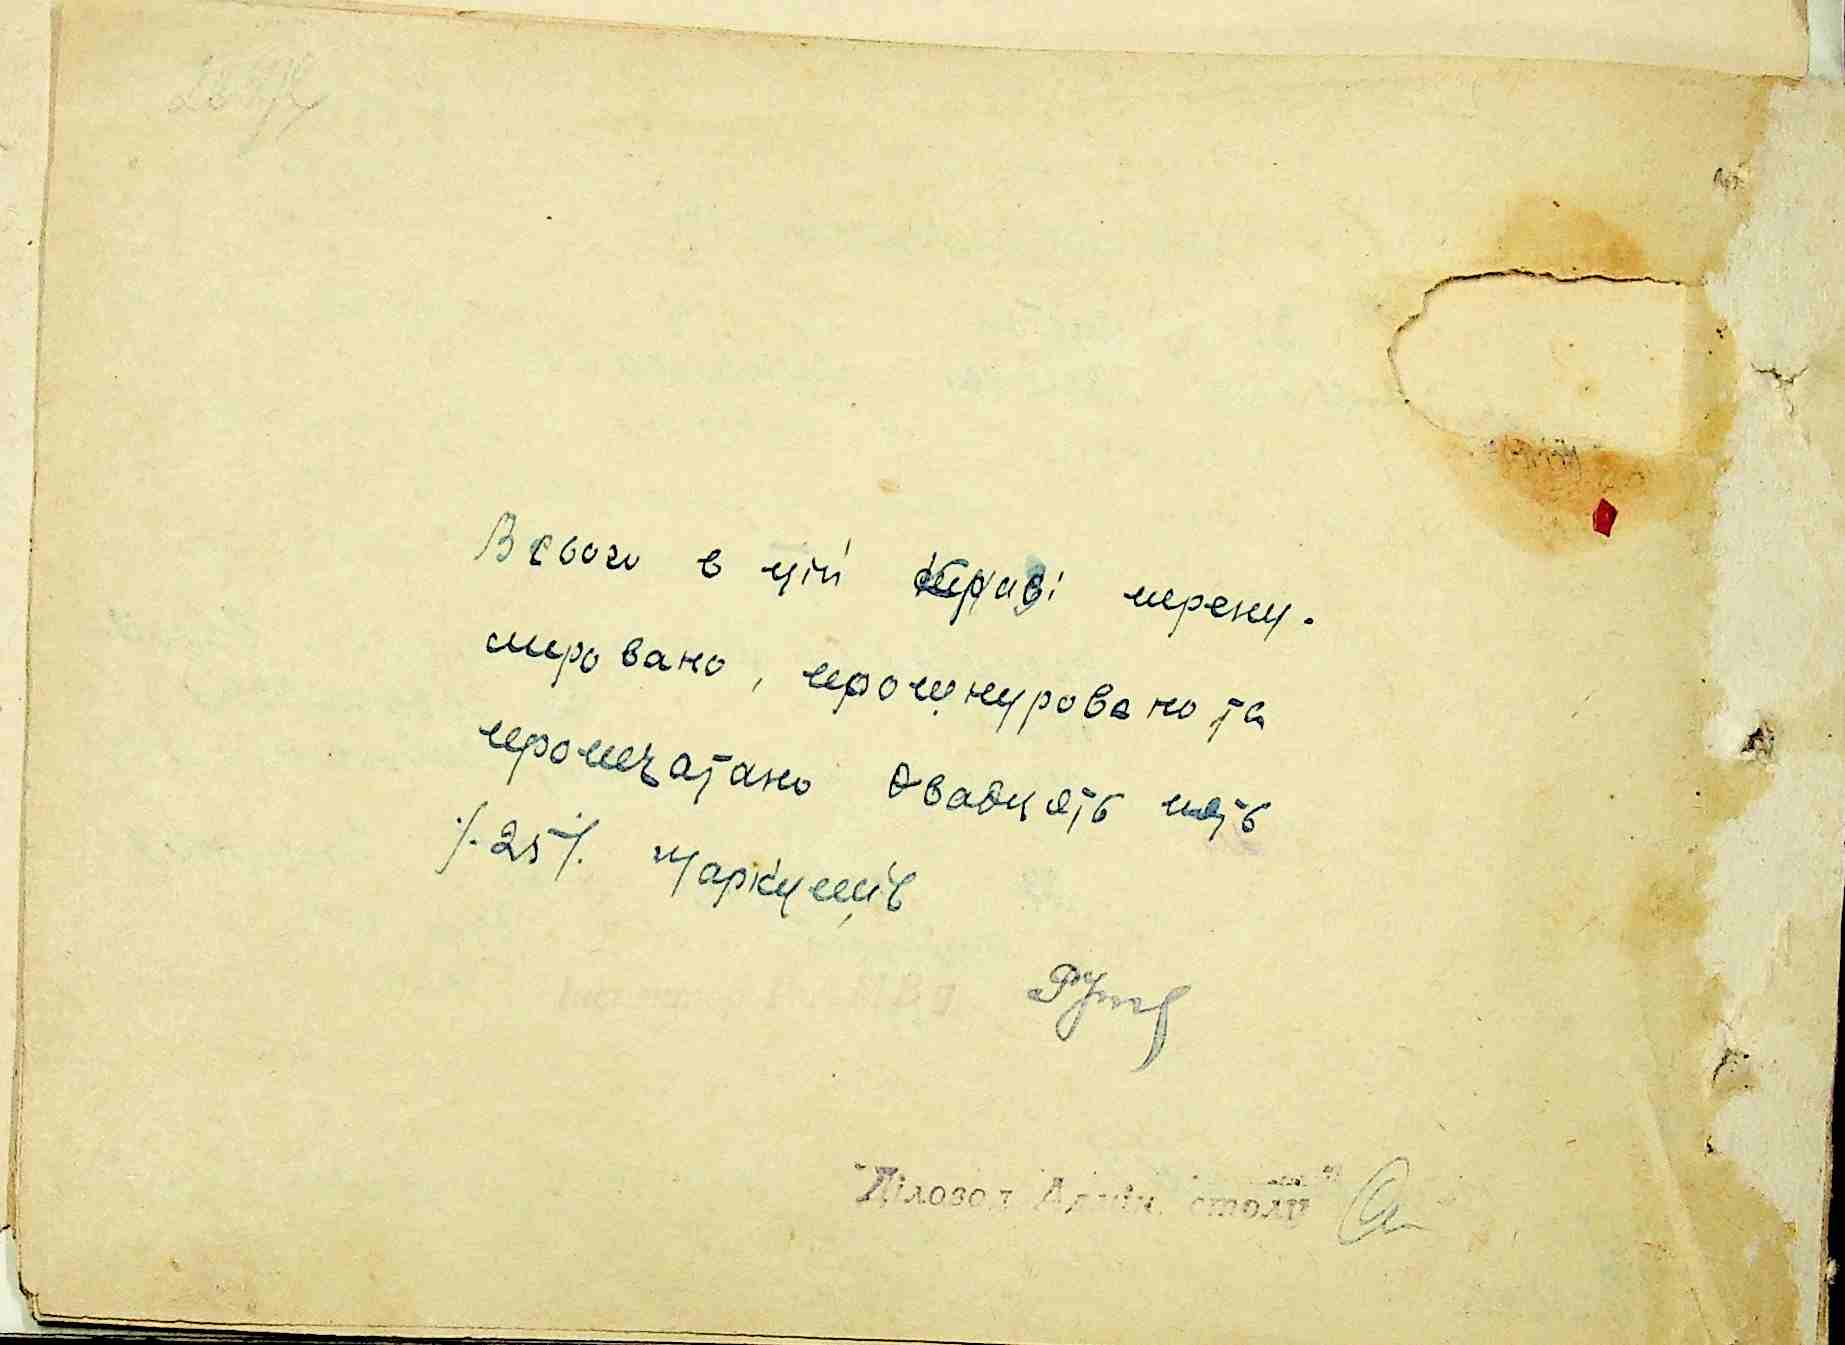 Всього в цій справі перену-
мировано, прошнуровано та
пропечатано двадцять пять
/. 25 /. Таркушів
Діловод Адмін. столу